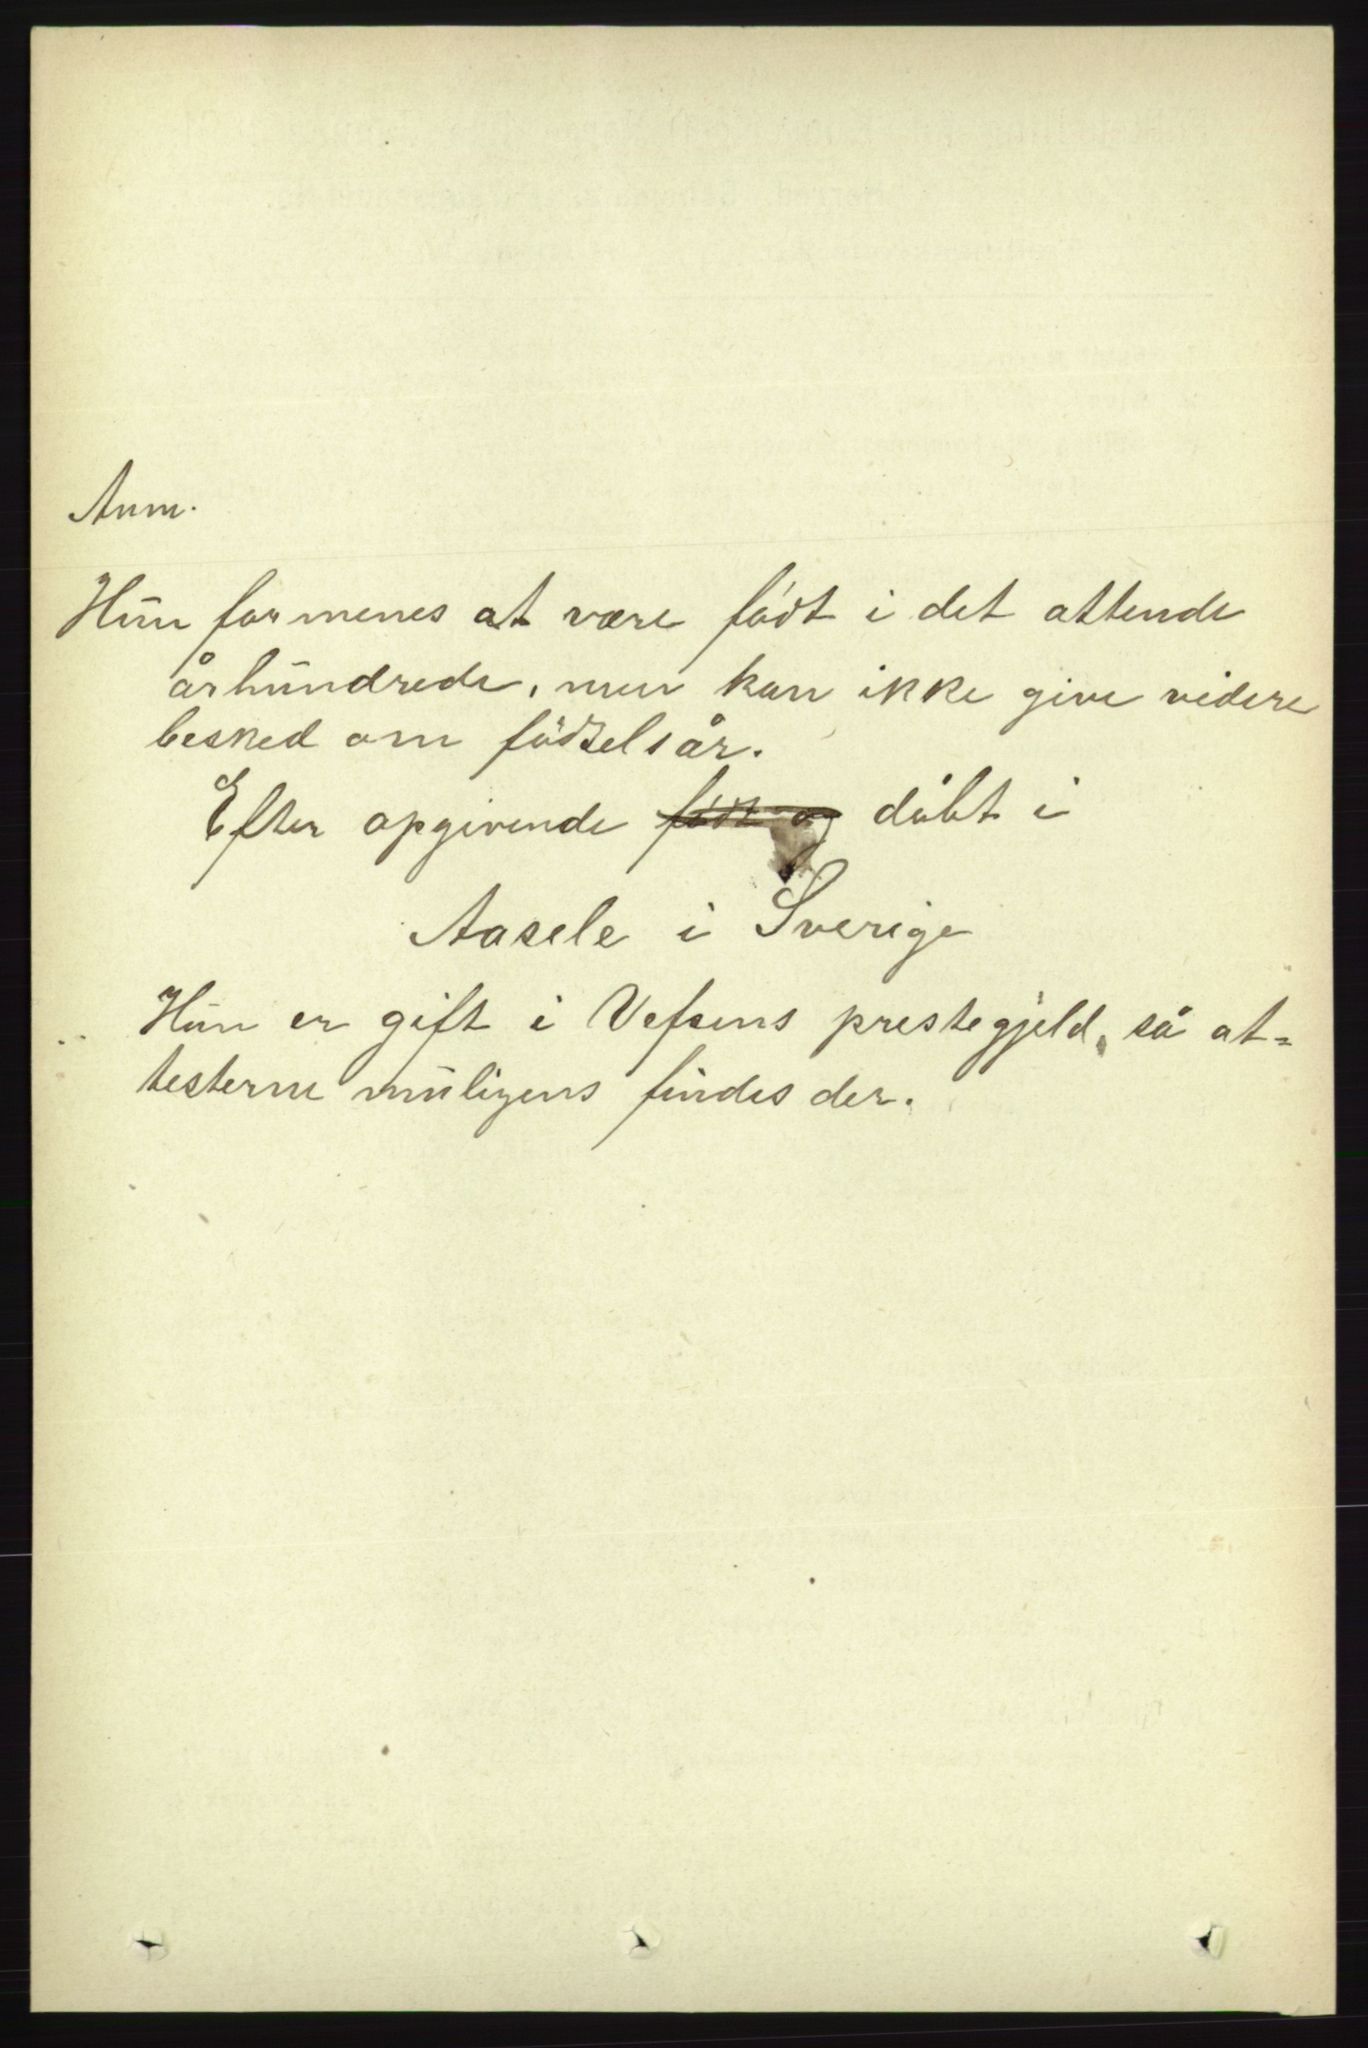 Anm.
Hun formenes at være födt i det attende
århundrede, men kan ikke give videre
besked om födselsår.
Efter opgivende födt og döbt i
Aasele i Sverige
Hun er gift i Vefsens prestegjeld, så at=
testerne muligens findes der.